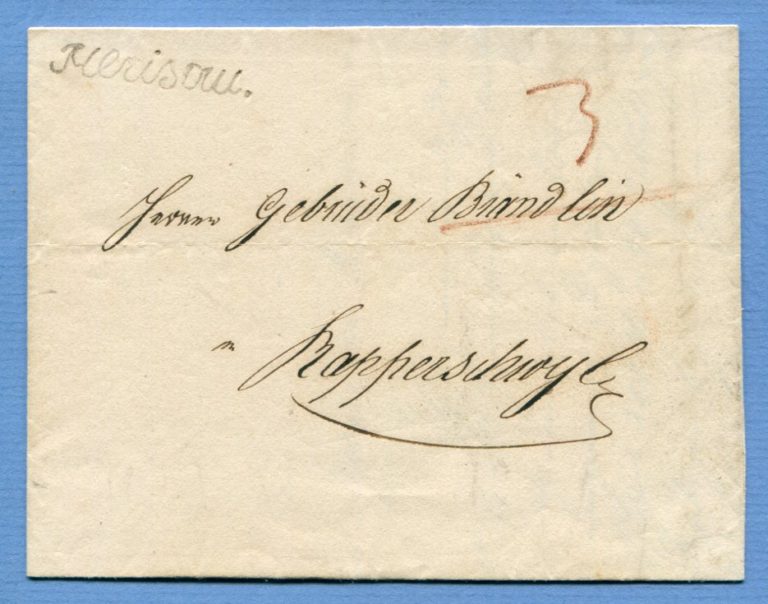 Herisau.
3
Herren Gebrüder Brändlin
in
Rapperschwyl